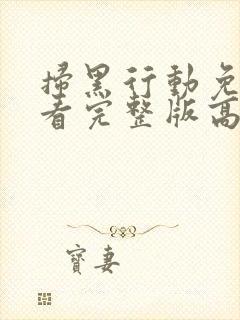 掃黑行動免
看完整版高
寶妻